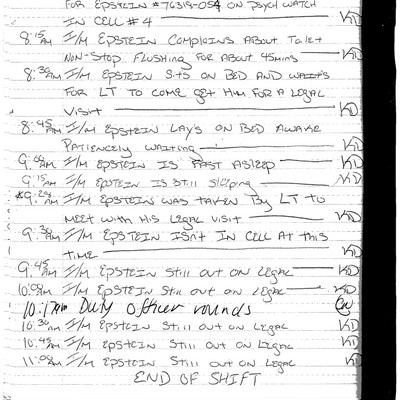 FOR EPSTEIN #76318-054 ON PSYCH WATCH
IN CELL #4 KD
8:15AM I/M EPSTEIN COMPLAINS ABOUT ToileT
NON-STOP FLUSHING FOR ABOUT 45mins KD
8:30AM I/M EPSTEIN SITS ON BED AND WAITS
FOR LT TO COME GET HIM FOR A LEGAL
VISIT KD
8:45AM I/M EPSTEIN LAYS ON BED AWAKE
PATIENCELY WAITING KD
9:00AM I/M EPSTEIN IS FAST ASLEEP KD
9:15AM I/M EPSTEIN IS STILL SLEEPING KD
I/M EPSTEIN WAS TAKEN BY LT TO
MEET WITH HIS LEGAL VISIT KD
9:30AM I/M EPSTEIN ISN'T IN CELL AT THIS
TIME KD
9:45AM I/M EPSTEIN STILL OUT ON LEGAL KD
10:00AM I/M EPSTEIN STILL OUT ON LEGAL KD
10:17AM Duty Officer rounds
10:30AM I/M EPSTEIN STILL OUT ON LEGAL KD
10:45AM I/M EPSTEIN STILL OUT ON LEGAL KD
11:00AM I/M EPSTEIN STILL OUT ON LEGAL KD
END OF SHIFT